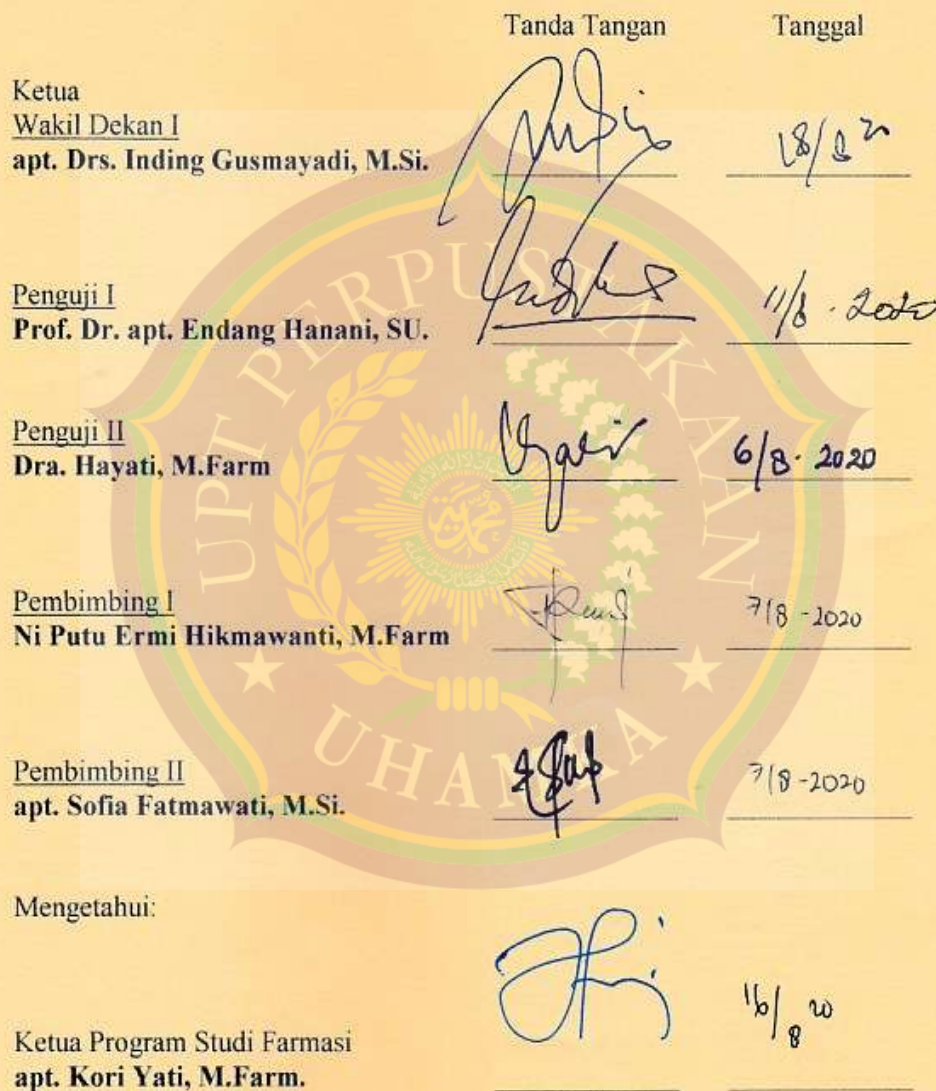 Tanda Tangan Tanggal
Ketua
Wakil Dekan I
apt. Drs. Inding Gusmayadi, M.Si. 18/8 20
Penguji I
Prof. Dr. apt. Endang Hanani, SU. 11/8 . 2020
Penguji II
Dra. Hayati, M.Farm 6/8 . 2020
Pembimbing I
Ni Putu Ermi Hikmawanti, M.Farm 7/8 - 2020
Pembimbing II
apt. Sofia Fatmawati, M.Si. 7/8 - 2020
Mengetahui:
Ketua Program Studi Farmasi 16/8 20
apt. Kori Yati, M.Farm.
UPT PERPUSTAKAAN
UHAMKA